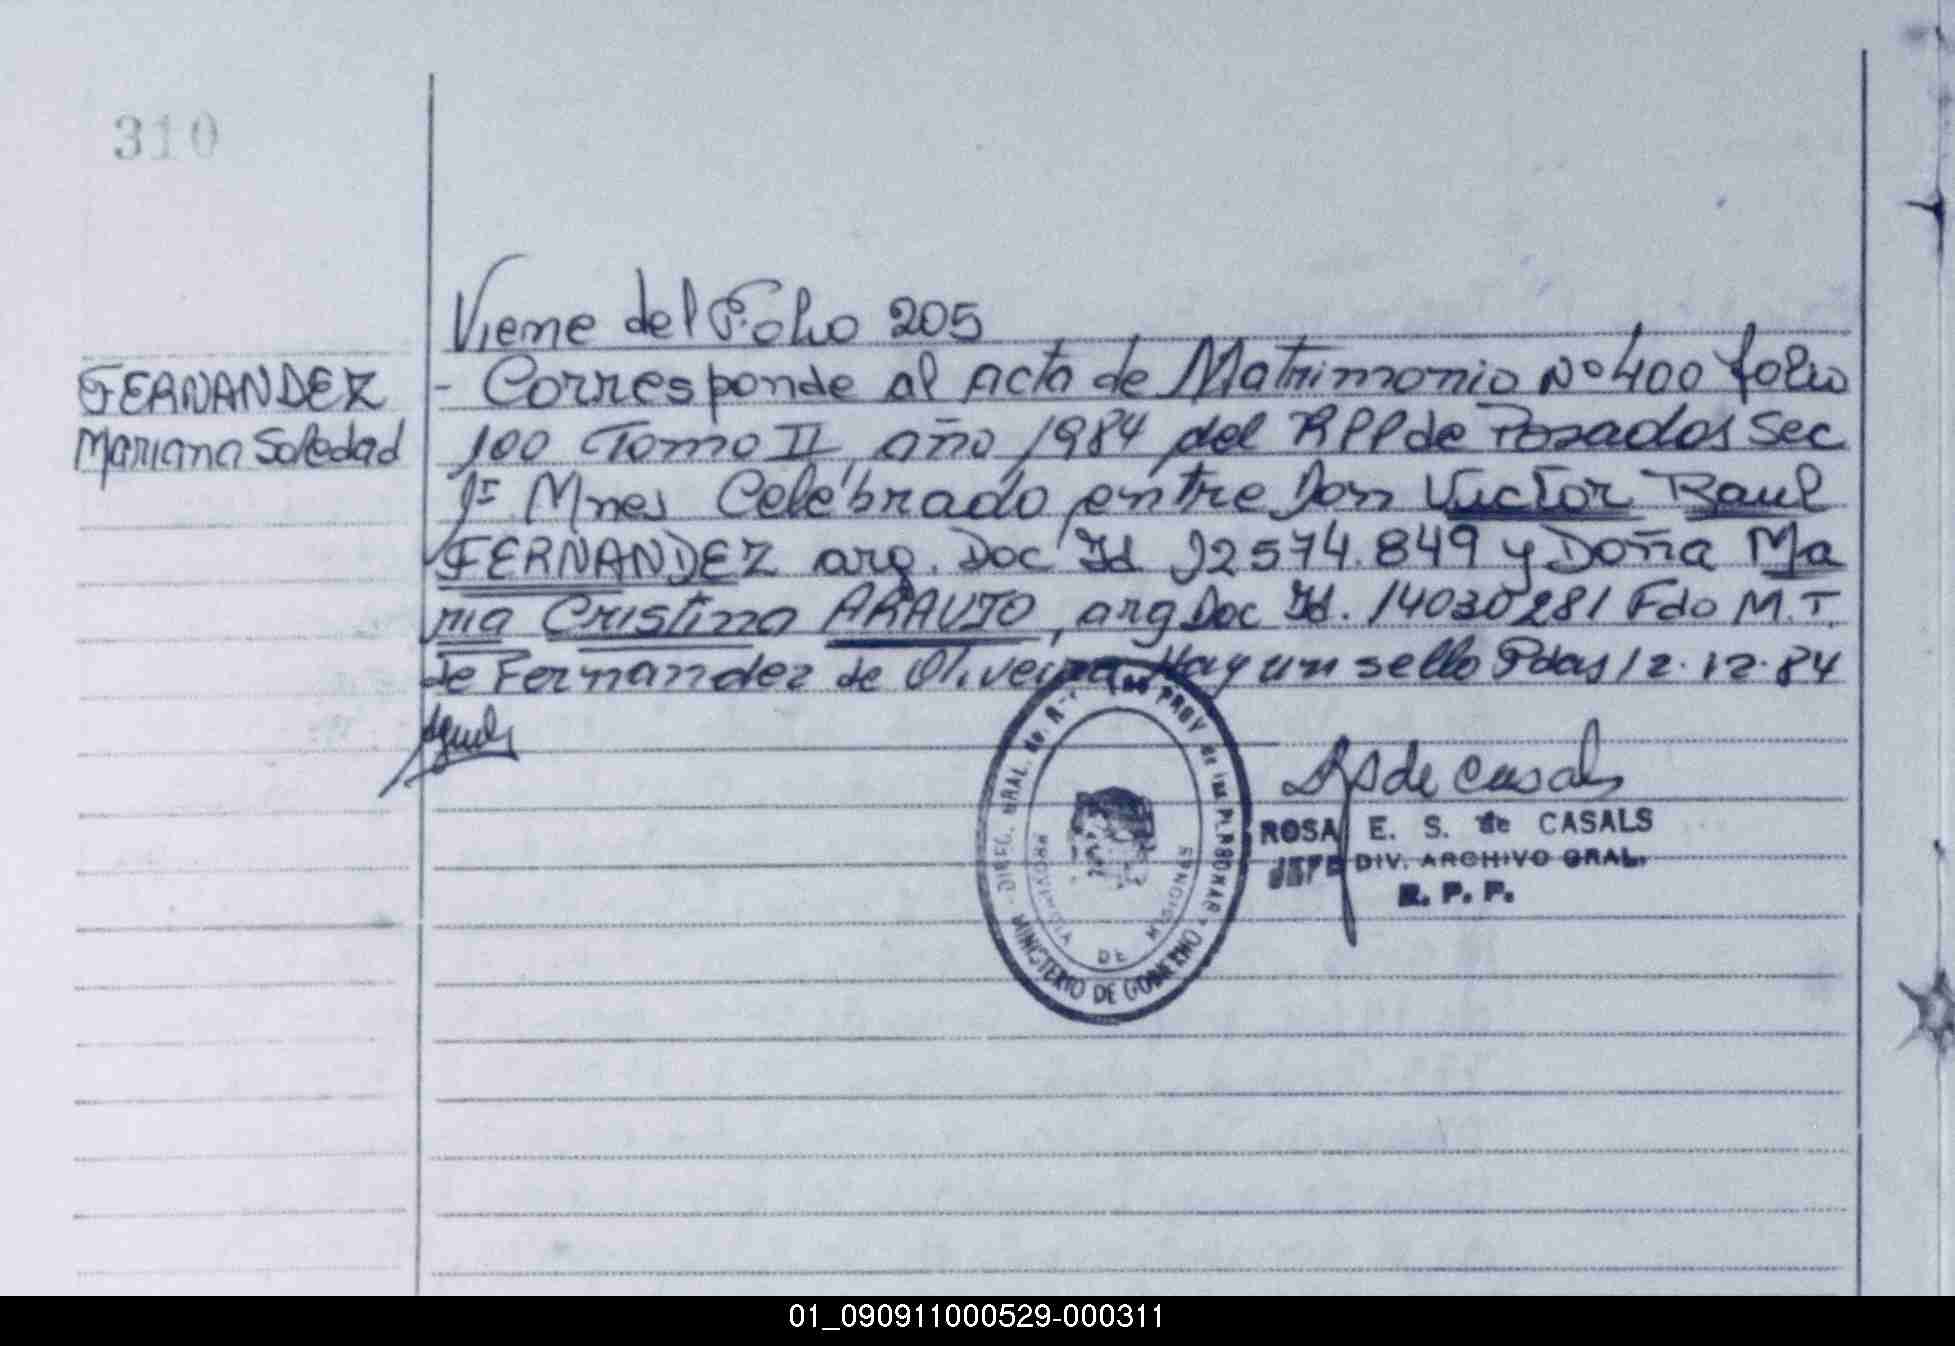 310
Viene del Folio 205
FERNANDEZ
Mariana Soledad
- Corresponde al Acta de Matrimonio Nº 400 folio
100 Tomo II, año 1984 del RPP de Posadas Sec
1ª Mnes Celebrado entre Don Victor Raul
FERNANDEZ arg. Doc Id 12574.849 y Doña Ma
ria Cristina ARAUJO, arg Doc Id. 14030281 Fdo M.T.
de Fernandez de Oliveira Hay un sello Pdas 12.12.84
RS de Casals
ROSA E. S. de CASALS
JEFE DIV. ARCHIVO GRAL.
R. P. P.
DIREC. GRAL. de PROV de las PERSONAS
MINISTERIO DE GOBIERNO
PROVINCIA DE MISIONES
01_090911000529-000311